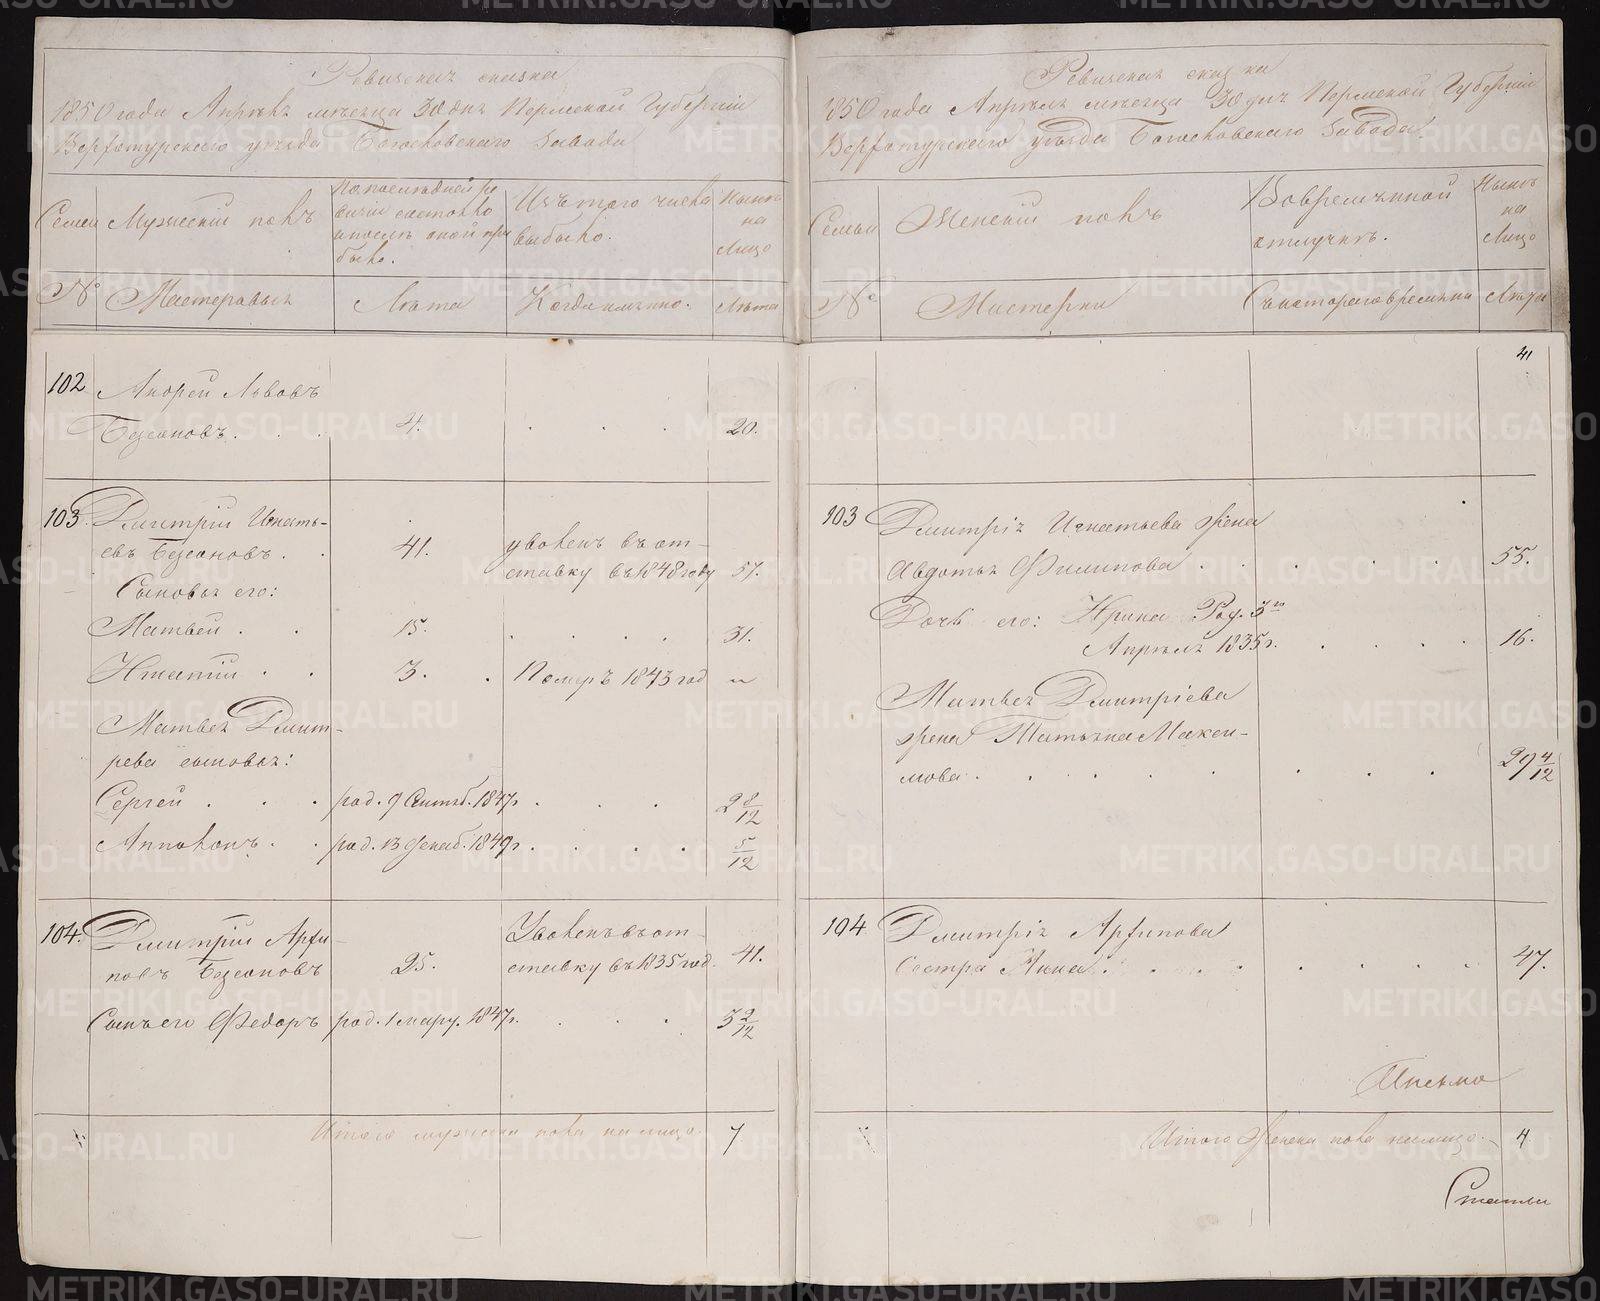 Ревизская сказка
1850 года Апреля месеца 30 дня Пермской Губернiи
Верхотурскаго уезда Богословскаго завода
Семьи
Мужескiй полъ
По последней ре
визiи состояло
и после оной при
было.
Изъ того числа
выбыло.
Ныне
на
лицо
№
Мастеровыя
Лета
Когда именно.
Лета
102
Андрей Львовъ
4.
20.
103.
Дмитрiй Игнать-
евъ
41.
уволенъ въ от-
ставку въ 1848 году
57.
Сыновья его:
Матвей
15.
31.
Игнатiй
3.
Померъ 1843 год
"
Матвея Дмит-
рева сыновья:
Сергей
род. 9 Сентяб. 1847г.
2 8/12
Апполонъ
род. 13 Декаб. 1849г.
5/12
104.
Дмитрiй Архи-
повъ
25.
Уволенъ въ от-
ставку въ 1835 год.
41.
Сынъ его Федоръ
род. 1 мару. 1847г.
3 2/12
Итого мужеска пола на лицо
7
Ревизская сказка
1850 года Апреля месеца 30 дня Пермской Губернiи
Верхотурскаго уезда Богословскаго завода
Семьи
Женскiй полъ
Во временной
отлучке.
Ныне
на
лицо
№
Мастерки
Съ котораго времени
Лета
41
103
Дмитрiя Игнатьева жена
Авдотья Филипова
55.
Дочь его: Ирина Род. 3го
Апреля 1835г.
16.
Матвея Дмитрiева
жена Татьяна Макси-
мова
29 4/12
104
Дмитрiя Архипова
Сестра Анна
47.
Итого женска пола налицо
4.
METRIKI.GASO-URAL.RU